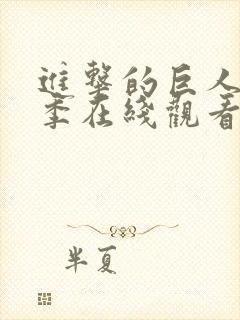 進擊的巨人
季在綫觀看
半夏